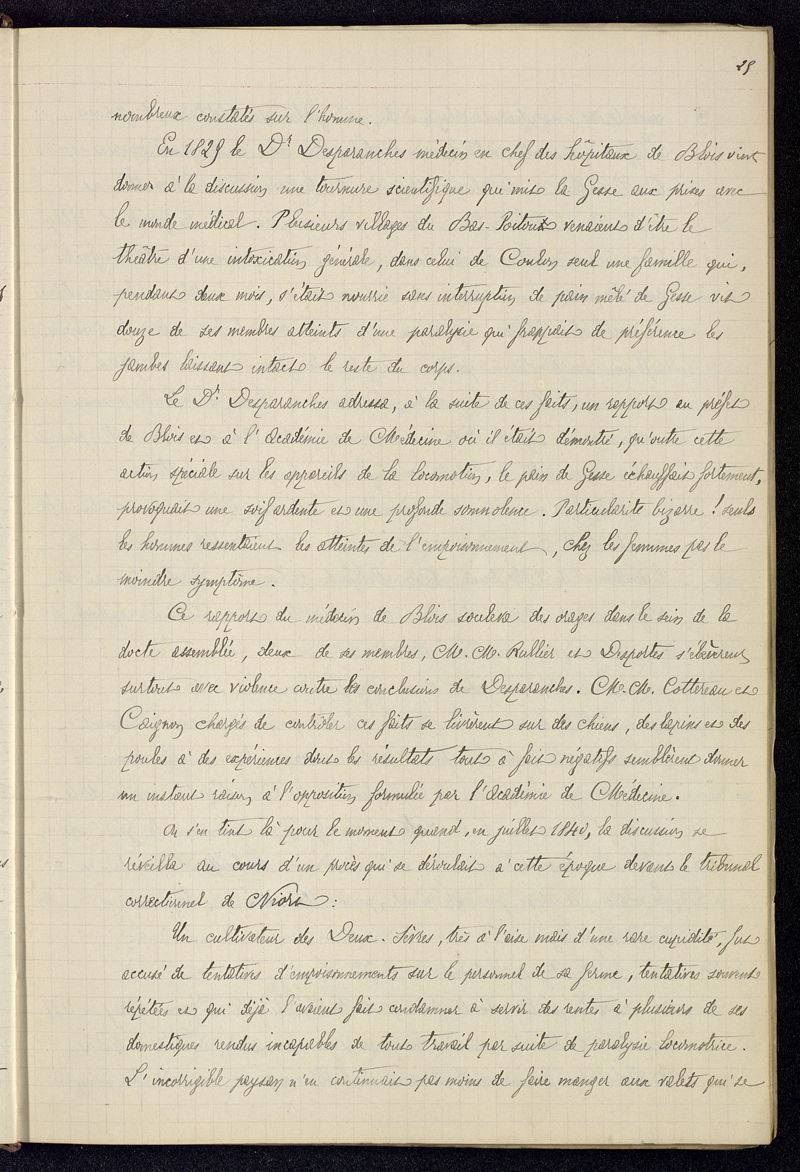 29
nombreux constatés sur l'homme.
En 1829 le Dr Desparanches médecin en chef des hôpitaux de Blois vint
donner à la discussion une tournure scientifique qui mit la Gesse aux prises avec
le monde médical. Plusieurs villages du Bas-Poitou venaient d'être le
théâtre d'une intoxication générale, dans celui de Coulon seul une famille qui,
pendant deux mois, s'était nourrie sans interruption de pain mêlé de Gesse vit
douze de ses membres atteints d'une paralysie qui frappait de préférence les
jambes laissant intact le reste du corps.
Le Dr Desparanches adressa, à la suite de ces faits, un rapport au préfet
de Blois et à l'Académie de Médecine où il était démontré, qu'outre cette
action spéciale sur les appareils de la locomotion, le pain de Gesse échauffait fortement,
provoquait une soif ardente et une profonde somnolence. Particularité bizarre ! seuls
les hommes ressentaient les atteintes de l'empoisonnement, chez les femmes pas le
moindre symptôme.
Ce rapport du médecin de Blois souleva des orages dans le sein de la
docte assemblée, deux de ses membres, M. M. Rullier et Desportes s'élevèrent
surtout avec violence contre les conclusions de Desparanches. M. M. Cottereau et
Caignon chargés de contrôler ces faits se livrèrent sur des chiens, des lapins et des
poules à des expériences dont les résultats tout à fait négatifs semblèrent donner
un instant raison à l'opposition formulée par l'Académie de Médecine.
On s'en tint là pour le moment quand, en juillet 1840, la discussion se
réveilla au cours d'un procès qui se déroulait à cette époque devant le tribunal
correctionnel de Niort :
Un cultivateur des Deux-Sèvres, très à l'aise mais d'une rare cupidité, fut
accusé de tentatives d'empoisonnements sur le personnel de sa ferme, tentatives souvent
répétées et qui déjà l'avaient fait condamner à servir des rentes à plusieurs de ses
domestiques rendus incapables de tout travail par suite de paralysie locomotrice.
L'incorrigible paysan n'en continuait pas moins de faire manger aux valets qui se